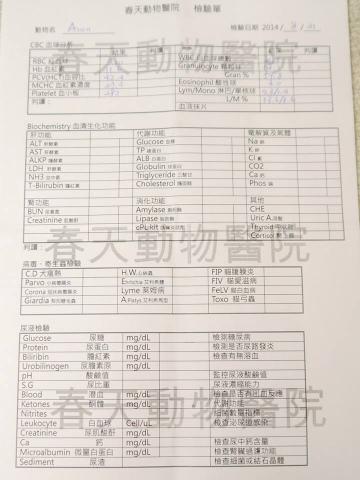 春天動物醫院 檢驗單
動物名 檢驗日期 2014 /
CBC 血球分析
結果 判讀 結果 判讀
RBC 紅血球 WBC 白血球總數
Hb 血紅素 Granulocyte 顆粒球
PCV(HCT)血容比 Gran %
MCHC 血紅素濃度 Eosinophil 酸性球
Platelet 血小板 Lym/Mono 淋巴/單核球
判讀： L/M %
血液抹片
Biochemistry 血清生化功能
肝功能 代謝功能 電解質及氣體
ALT 肝酵素 Glucose 血糖 Na 鈉
AST 肝酵素 TP 總蛋白 K 鉀
ALKP 膽酵素 ALB 白蛋白 Cl 氯
LDH 肝酵素 Globulin 球蛋白 CO2
NH3 血中氨 Triglyceride 三酸甘 Ca 鈣
T-Bilirubin 膽紅素 Cholesterol 膽固醇 Phos 磷
腎功能 消化功能 其他
BUN 尿素氮 Amylase 澱粉酶 CHE
Creatinine 肌酸酐 Lipase 脂肪酶 Uric A 尿酸
cPL/fPL Thyroid 甲狀腺
Cortisol 腎上腺
判讀：
病毒、寄生蟲檢驗
C.D 犬瘟熱 H.W 心絲蟲 FIP 貓腹膜炎
Parvo 小病毒腸炎 Ehrlichia 艾利希體 FIV 貓愛滋病
Corona 冠狀病毒腸炎 Lyme 萊姆病 FeLV 貓白血病
Giardia 梨形鞭毛蟲 A.Platys 艾利希體 Toxo 貓弓蟲
尿液檢驗
Glucose 尿糖 mg/dL 檢測糖尿病
Protein 尿蛋白 mg/dL 檢測是否尿路發炎
Biliribin 膽紅素 mg/dL 檢查有無溶血
Urobilinogen 尿膽素原 mg/dL
pH 酸鹼值 監控尿液酸鹼值
S.G 尿比重 尿液濃縮能力
Blood 潛血 mg/dL 檢查是否有出血反應
Ketones 酮體 mg/dL 代謝功能
Nitrites 細菌數量指標
Leukocyte 白血球 Cell/uL 檢查泌尿道感染
Creatinine 尿肌酸酐 mg/dL
Ca 鈣 mg/dL 檢查尿中鈣含量
Microalbumin 微量白蛋白 mg/dL 檢查腎臟過濾功能
Sediment 尿渣 檢查細菌或結石晶體
春天動物醫院
春天動物醫院
春天動物醫院